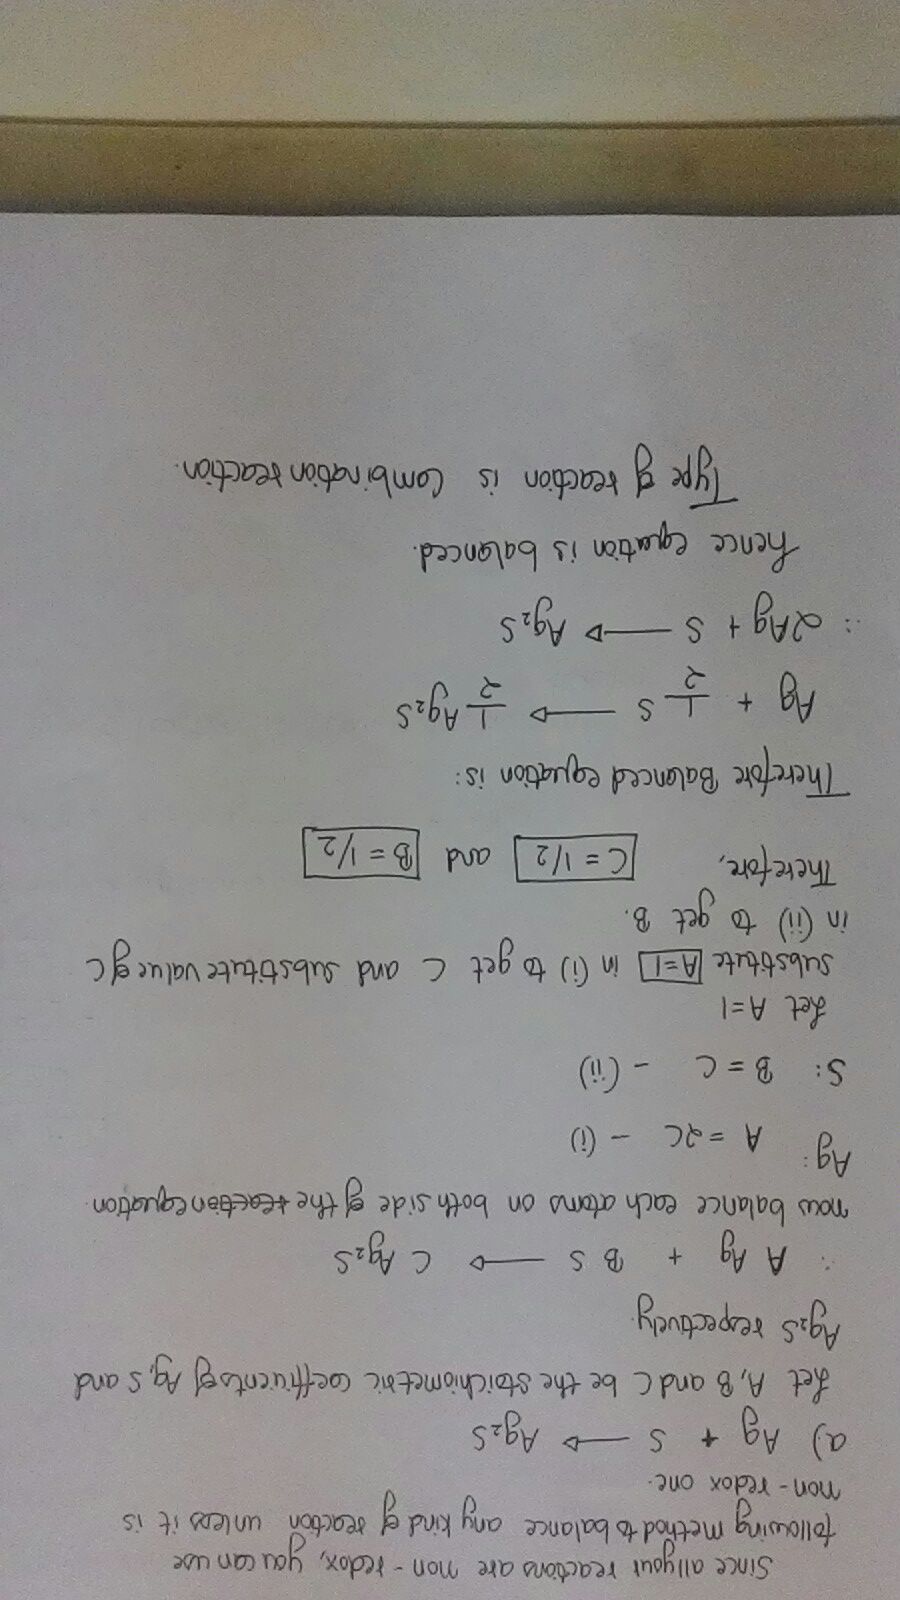 Since all your reactions are non-redox, you can use
following method to balance any kind of reaction unless it is
non-redox one.
a) Ag + S → Ag₂S
Let A, B and C be the stoichiometric coefficients of Ag, S and
Ag₂S respectively.
∴ A Ag + B S → C Ag₂S
now balance each atoms on both side of the reaction equation.
Ag: A = 2C - (i)
S: B = C - (ii)
Let A=1
substitute A=1 in (i) to get C and substitute value of C
in (ii) to get B.
Therefore, C = 1/2 and B = 1/2
Therefore Balanced equation is:
Ag + 1/2 S → 1/2 Ag₂S
∴ 2Ag + S → Ag₂S
hence equation is balanced.
Type of reaction is combination reaction.